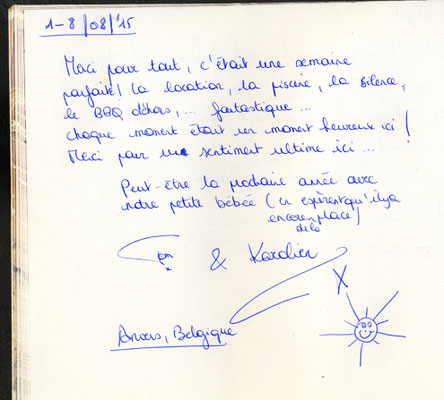 1-8/08/'15
Merci pour tout, c'était une semaine
parfaite! la location, la piscine, la silence,
le BBQ dehors, ... fantastique ...
chaque moment était un moment heureux ici!
Merci pour un sentiment ultime ici ...
Peut-être la prochaine année avec
notre petite bébée (en espérant qu'il y a
encore place)
& Karolien
X
Anvers, Belgique